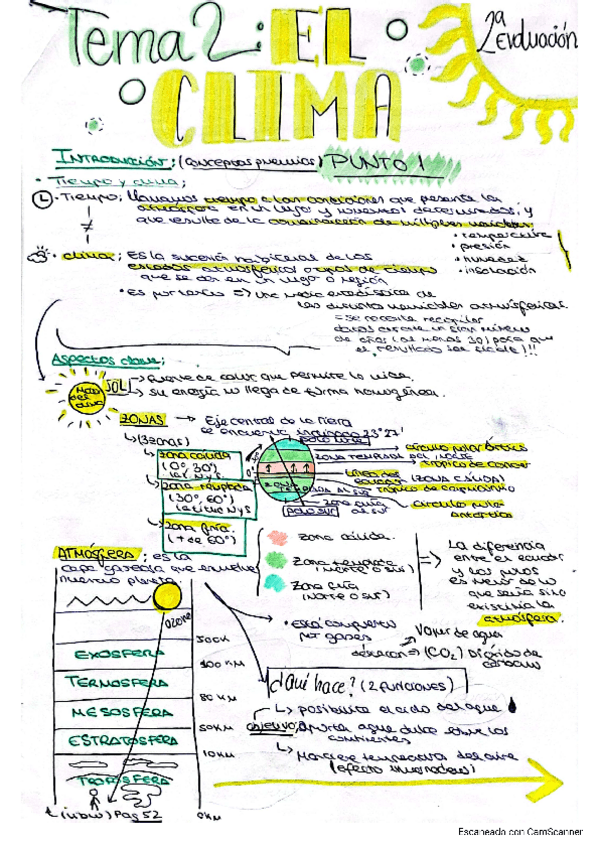 Tema 2: EL
CLIMA
2ª Evaluación
INTRODUCCIÓN; (conceptos previos) PUNTO 1
• Tiempo y clima;
• Tiempo; llamamos tiempo a las condiciones que presenta la
atmósfera en un lugar y momentos determinados, y
que resulta de la combinación de múltiples variables
• temperatura
• presión
• humedad
• insolación
≠
• clima; Es la sucesión habitual de los
estados atmosféricos o tipos de tiempo
que se dan en un lugar o región
• Es por tanto => Una media estadística de
las distintas variables atmosféricas.
= se necesita recopilar
datos durante un gran número
de años (al menos 30) para que
el resultado sea fiable!!!
Aspectos clave;
Motor del clima
SOL
Fuente de calor que permite la vida.
su energía no llega de forma homogénea.
ZONAS → Eje central de la tierra
se encuentra inclinado 23º 27'
(3 zonas)
zona cálida
(0º, 30º)
lat N y S
zona templada
(30º, 60º)
latitud N y S
zona fría
(+ de 60º)
polo norte
círculo polar ártico
ZONA TEMPLADA DEL NORTE
trópico de cáncer
línea del ecuador (ZONA CÁLIDA)
trópico de capricornio
círculo polar antártico
zona fría del sur
polo sur
zona cálida.
zona templada
(NORTE O SUR)
Zona fría
(NORTE O SUR)
=> La diferencia
entre el ecuador
y los polos
es menor de lo
que sería si no
existiera la
atmósfera.
ATMÓSFERA; es la
capa gaseosa que envuelve
nuestro planeta.
• Está compuesto
por gases
Vapor de agua
(CO2) Dióxido de
carbono
ozono
500K
EXOSFERA
100 KM
TERMOSFERA
80 KM
MESOSFERA
50KM
ESTRATOSFERA
10KM
TROPOSFERA
0KM
¿Qué hace? (2 FUNCIONES)
↳ posibilita el ciclo del agua
objetivo; Aportar agua dulce sobre los
continentes
↳ Mantiene temperatura del aire
(efecto invernadero)
t (libro) Pág 52
Escaneado con CamScanner